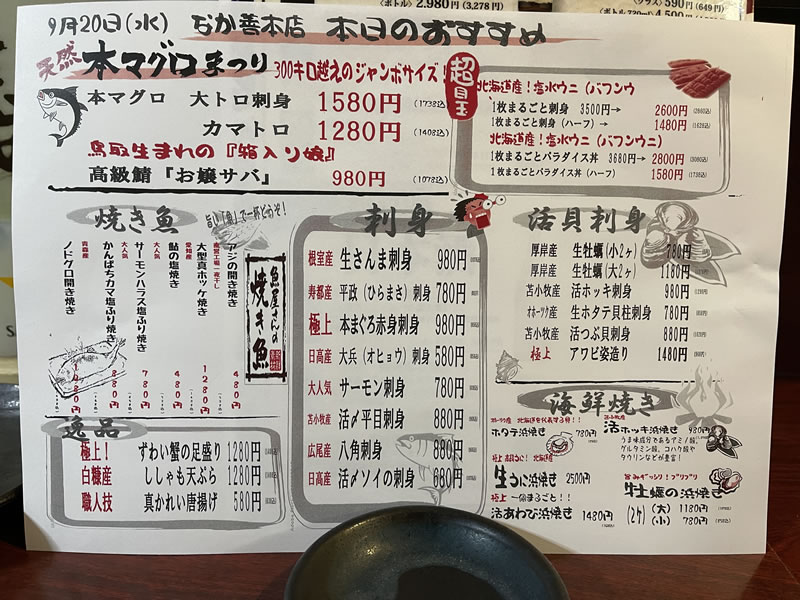 〈ボトル〉2,980円(3,278円)
590円(649円)
9月20日(水) なか善本店 本日のおすすめ
天然 本マグロまつり 300キロ越えのジャンボサイズ!
本マグロ 大トロ刺身 1580円 (1738込)
カマトロ 1280円 (1408込)
鳥取生まれの『箱入り娘』
高級鯖『お嬢サバ』 980円 (1078込)
超目玉
北海道産!塩水ウニ(バフンウ
1枚まるごと刺身 3500円→ 2600円
1枚まるごと刺身(ハーフ)→ 1480円
北海道産!塩水ウニ(バフンウニ)
1枚まるごとパラダイス丼 3680円→ 2800円
1枚まるごとパラダイス丼(ハーフ) 1580円
焼き魚
旨い「魚」で一杯どうぞ!
魚屋さんの焼き魚
アジの開き焼き 480円
大型真ホッケ焼き 1280円
愛知産 鮎の塩焼き 480円
大人気 サーモンハラス塩ふり焼き 780円
大人気 かんぱちカマ塩ふり焼き 880円
青森産 ノドグロ開き焼き 1080円
刺身
根室産 生さんま刺身 980円
寿都産 平政(ひらまさ)刺身 780円
極上 本まぐろ赤身刺身 980円
日高産 大兵(オヒョウ)刺身 580円
大人気 サーモン刺身 780円
苫小牧産 活〆平目刺身 880円
広尾産 八角刺身 880円
日高産 活〆ソイの刺身 680円
活貝刺身
厚岸産 生牡蠣(小2ヶ) 780円
厚岸産 生牡蠣(大2ヶ) 1180円
苫小牧産 活ホッキ刺身 980円
オホーツク産 生ホタテ貝柱刺身 780円
苫小牧産 活つぶ貝刺身 880円
極上 アワビ姿造り 1480円
逸品
極上! ずわい蟹の足盛り 1280円
白糠産 ししゃも天ぷら 1280円
職人技 真かれい唐揚げ 580円
海鮮焼き
ホタテ浜焼き 580円
活ホッキ浜焼き 980円
うま味成分であるアミノ酸、
グルタミン酸、コハク酸や
タウリンなどが豊富!
生うに浜焼き 2500円
極上 一個まるごと!!
活あわび浜焼き 1480円
旨みギッシリ!プリプリ
牡蠣の浜焼き
(2ヶ) (大) 1180円
(小) 780円